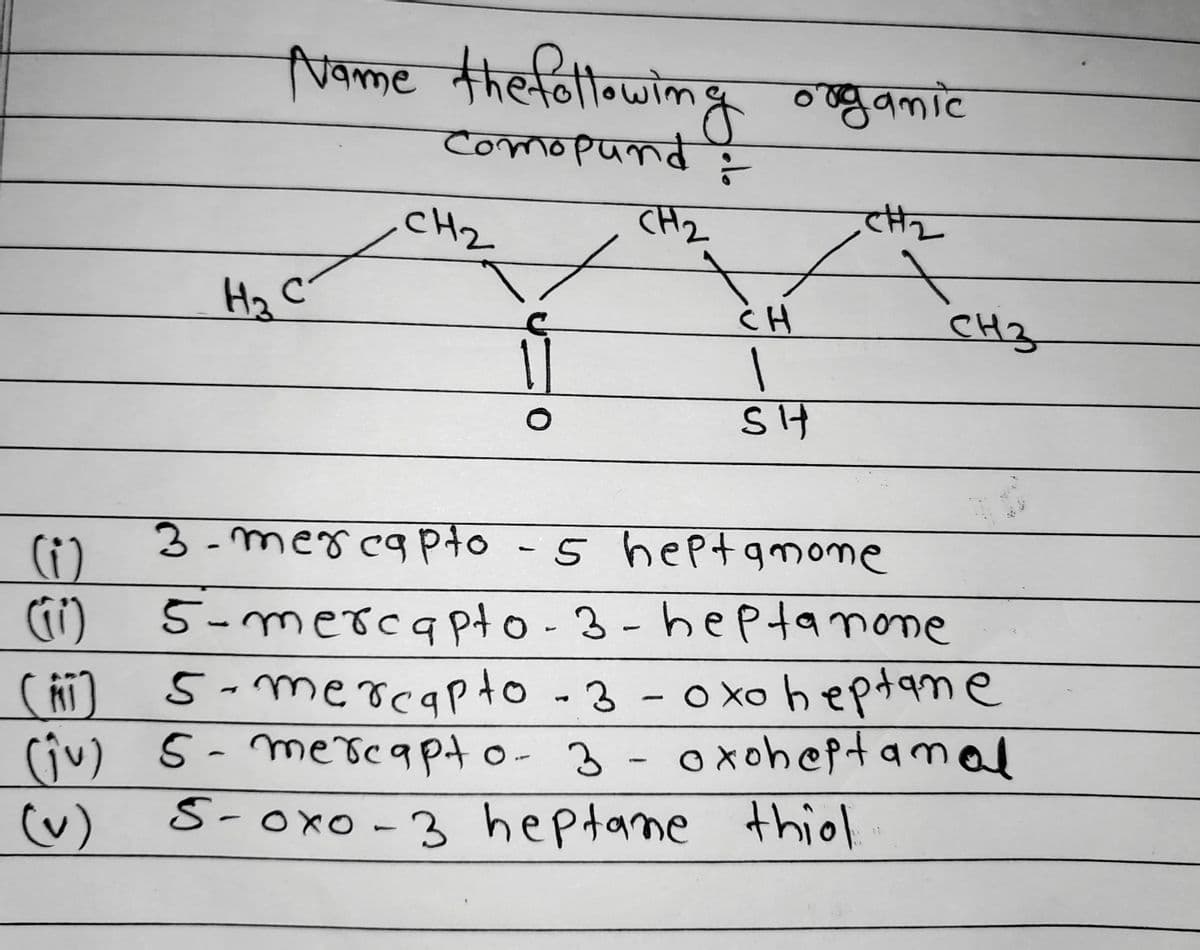 Name thefollowing organic
comopund :-
CH2 CH2 CH2
H3C C CH CH3
O SH
(i) 3-mercapto-5 heptanone
(ii) 5-mercapto-3-heptanone
(iii) 5-mercapto-3-oxoheptane
(iv) 5-mercapto-3-oxoheptanal
(v) 5-oxo-3 heptane thiol